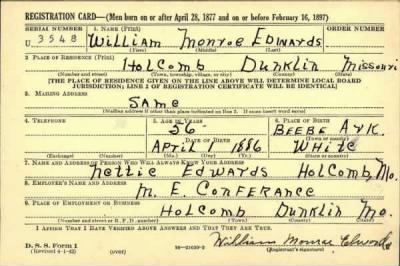 REGISTRATION CARD—(Men born on or after April 28, 1877 and on or before February 16, 1897)
SERIAL NUMBER 1. NAME (Print)
U 3548 William Monroe Edwards
(First) (Middle) (Last)
2. PLACE OF RESIDENCE (Print)
Holcomb Dunklin Missouri
(Number and street) (Town, township, village, or city) (County) (State)
[THE PLACE OF RESIDENCE GIVEN ON THE LINE ABOVE WILL DETERMINE LOCAL BOARD
JURISDICTION; LINE 2 OF REGISTRATION CERTIFICATE WILL BE IDENTICAL]
3. MAILING ADDRESS
SAME
[Mailing address if other than place indicated on line 2. If same insert word same]
4. TELEPHONE 5. AGE IN YEARS 6. PLACE OF BIRTH
56 BEEBE ARK.
DATE OF BIRTH (Town or county)
APRIL 1 1886 WHITE
(Exchange) (Number) (Mo.) (Day) (Yr.) (State or country)
7. NAME AND ADDRESS OF PERSON WHO WILL ALWAYS KNOW YOUR ADDRESS
Nettie EDWARDS Holcomb Mo.
8. EMPLOYER'S NAME AND ADDRESS
M. E. CONFERANCE
9. PLACE OF EMPLOYMENT OR BUSINESS
Holcomb Dunklin Mo.
(Number and street or R. F. D. number) (Town) (County) (State)
I AFFIRM THAT I HAVE VERIFIED ABOVE ANSWERS AND THAT THEY ARE TRUE.
D. S. S. Form 1 William Monroe Edwards
(Revised 4-1-42) (over) 16—21630-2 (Registrant's signature)